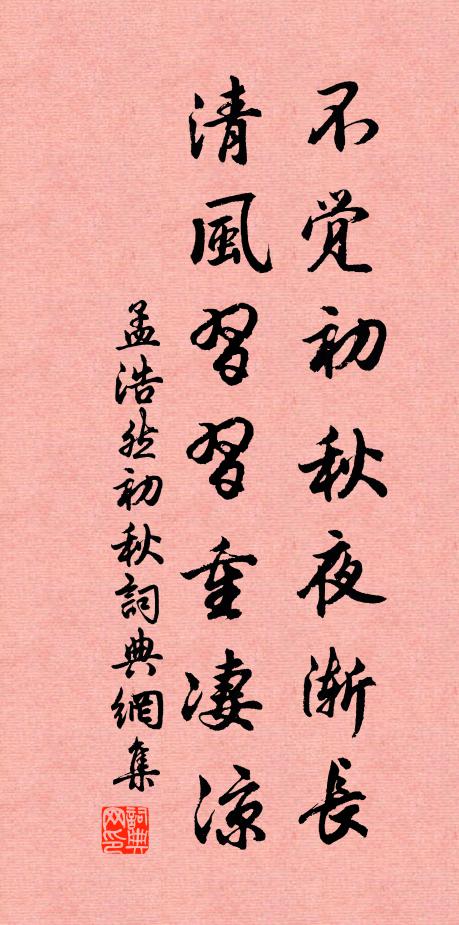 不覺初秋夜漸長
清風習習重淒涼
孟浩然初秋詞典網集
詞典网印